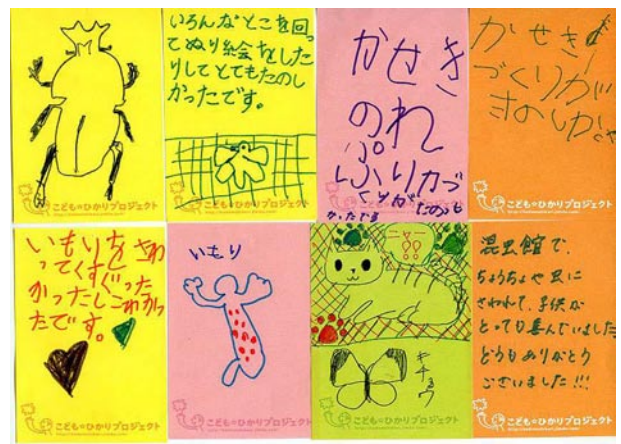 こども*ひかりプロジェクト
いろんなとこを回っ
てぬり絵をした
りしてとてもたのし
かったです。
こども*ひかりプロジェクト
かせき
のれ
ぷりカづ
くりがたのし
かったでる
こども*ひかりプロジェクト
かせき
づくりが
たのしかった
こども*ひかりプロジェクト
いもりをさわ
ってくすぐった
かったしこわかっ
たです。
こども*ひかりプロジェクト
いもり
こども*ひかりプロジェクト
ニャー
キチョウ
こども*ひかりプロジェクト
昆虫館で、
ちょうちょや虫に
さわれて、子供が
とっても喜んでいました
どうもありがとう
ございました!!!
こども*ひかりプロジェクト